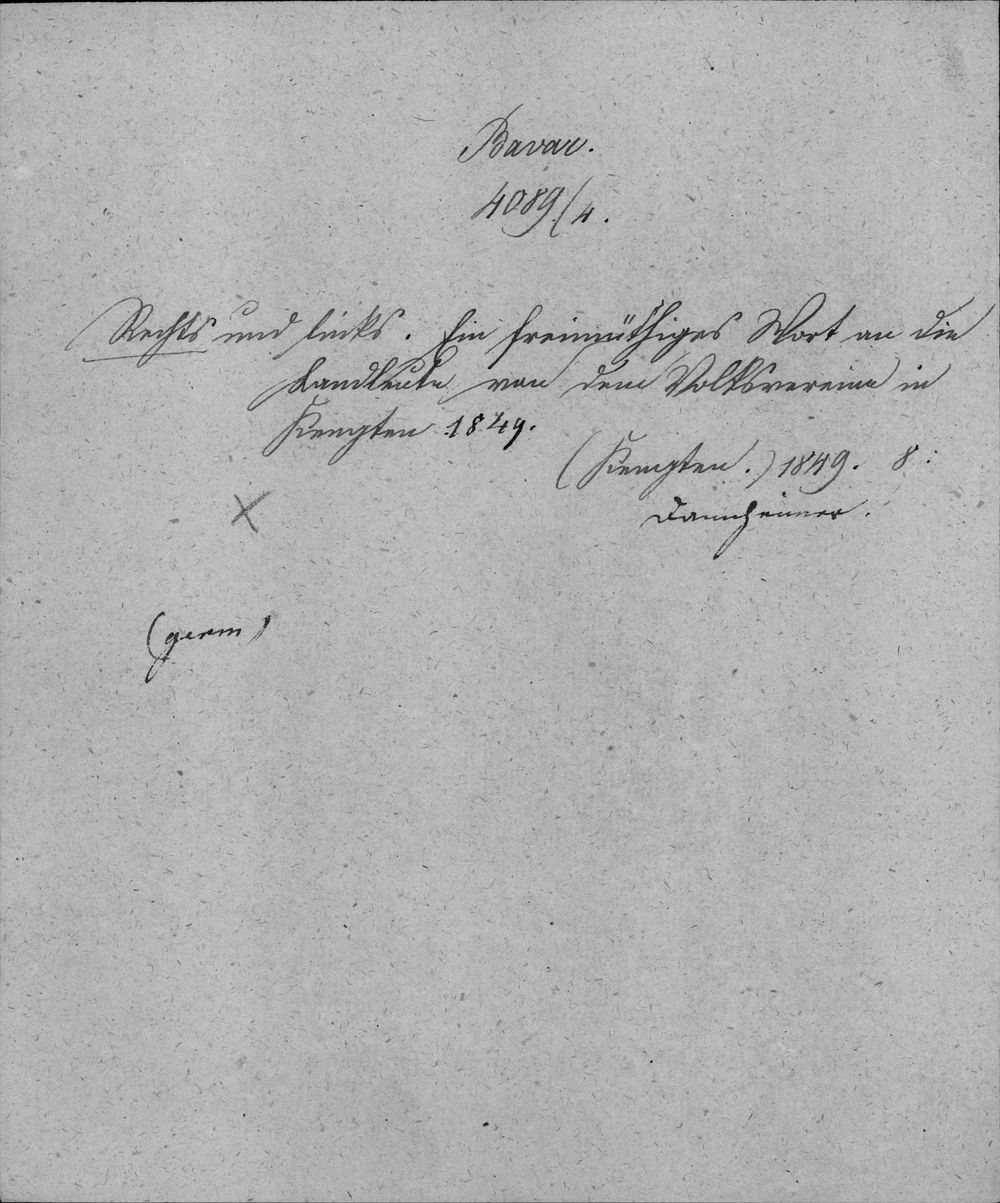 Bavar.
4089/4.
Rechts und links. Ein freimüthiges Wort an die
Landleute von dem Volksvereine in
Kempten 1849.
(Kempten.) 1849. 8.
Dannheimer.
X
(germ)